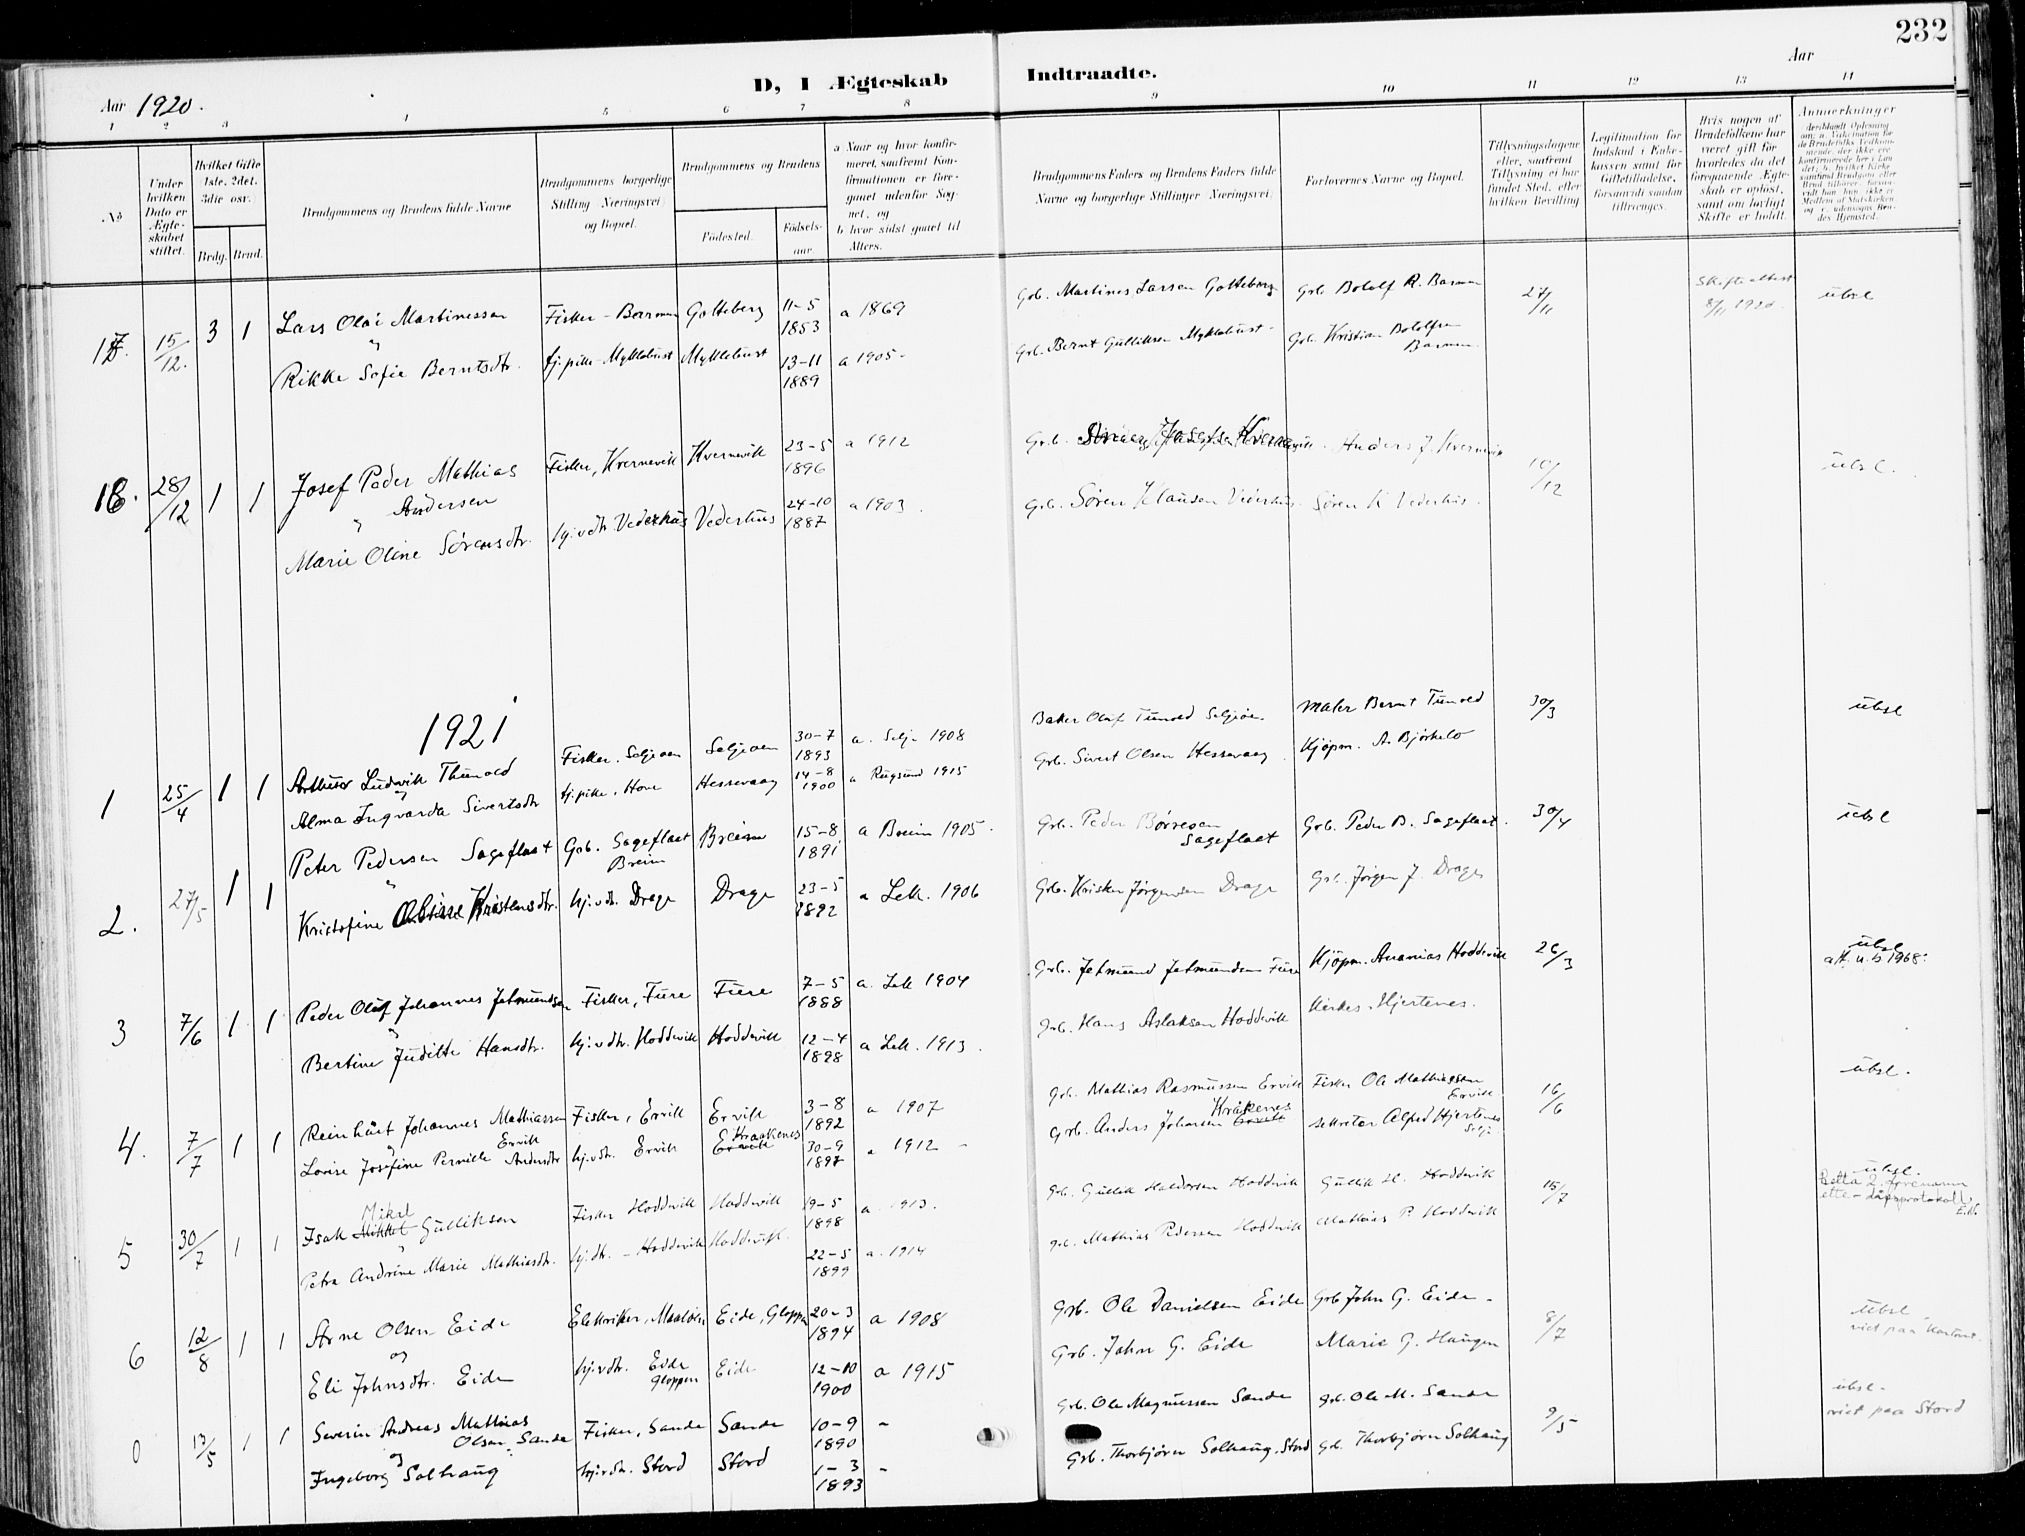 232
D, I Ægteskab Indtraadte.
Aar 1920. Aar
1 2 3 4 5 6 7 8 9 10 11 12 13 14
No
Under hvilken Dato er Ægteskabet stiftet.
Hvilket Gifte 1ste, 2det, 3die osv.
Brdg. Brud.
Brudgommens og Brudens fulde Navne
Brudgommens borgerlige Stilling Næringsvei og Bopæl.
Brudgommens og Brudens
Fødested. Fødselsaar
a Naar og hvor konfirmeret, saafremt Konfirmationen er foregaaet udenfor Sognet, og
b hvor sidst gaaet til Alters.
Brudgommens Faders og Brudens Faders fulde Navne og borgerlige Stillinger Næringsvei.
Forlovernes Navne og Bopæl.
Tillysningsdagene eller, saafremt Tillysning ei har fundet Sted, efter hvilken Bevilling
Legitimation for Indskud i Enkekassen samt for Giftetilladelse, forsaavidt saadan tiltrænges.
Hvis nogen af Brudefolkene har været gift før hvorledes da det foregaaende Ægteskab er opløst, samt om lovligt Skifte er holdt.
Anmerkninger
17. 15/12. 3 1 Lars Olai Martinussen Fisker - Barmen Gotteberg 11-5 1853 a 1869 Grb. Martines Larsen Gotteberg Grb. Bololf R. Barmen 27/11 Skifteattest 8/11 1920. ubsl
"
Rikke Sofie Berntsdtr. tj.pike - Myklebust Myklebust 13-11 1889 a 1905 - Grb. Bernt Gulliksen Myklebust - Grb. Kristian Bololfsen Barmen.
18. 28/12 1 1 Josef Peder Mathias Andersen Fisker, Kvernevik Kvernevik 23-5 1896 a 1912 Grb. Anders J. Kvernevik 10/12 ubsl.
"
Marie Oline Sørensdtr. hj.v.dtr. Vederhus Vederhus 24-10 1887 a 1903. Grb. Søren Klausen Vederhus. Søren K Vederhus.
1921
1 25/4 1 1 Arthur Ludvik Thunold Fisker. Seljeoen Seljeoen 30-7 1893 a. Selje 1908 Baker Olaf Tunold Seljeøen. Maler Bernt Tunold 30/3 ubsl
"
Alma Ingvarda Sivertsdtr tj.pike, Hove Hessevaag 14-8 1900 a Rugsund 1915 Grb. Sivert Olsen Hessevaag Kjøpm. A. Bjørkelo
2. 27/5 1 1 Peter Pedersen Sageflaat Grb. Sageflaat Breim Breim 15-8 1891 a Breim 1905. Grb. Peder Børresen Sageflaat Grb. Peder B. Sageflaat. 30/4 ubsl
"
Kristofine Kristensdtr. hj.v.dtr. Drage Drage 23-5 1892 a Lek. 1906 Grb. Kristen Jørgensen Drage Grb. Jørgen J. Drage
3 7/6 1 1 Peder Olaf Johannes Jetmundsen Fisker, Fure Fure 7-5 1888 a. Lek 1904 Grb. Jetmund Jetmundsen Fure Kjøpm. Ananias Hoddevik 26/3 ubsl.
att. u. b 1968.
"
Bertine Juditte Hansdtr. hj.v.dtr. Hoddevik Hoddevik 12-4 1898 a Lek. 1913. Grb. Hans Aslaksen Hoddevik Kirkes. Hjertenes.
4. 7/7 1 1 Reinhart Johannes Mathiassen Ervik Fisker, Ervik Ervik 3-8 1892 a 1907 Grb. Mathias Rasmussen Ervik Fisker Ole Mathiassen Ervik 16/6 ubsl.
"
Lovise Josefine Pernille Andersdtr hj.v.dtr. Ervik Kraakenes Ervik 30-9 1897 a 1912 - Grb. Anders Johansen Kråkenes Ervik sekretær Alfred Hjertenes Selje
5 30/7 1 1 Isak Mikal Mikkel Gulliksen Fisker Hoddevik Hoddevik 19-5 1898 a. 1913. Grb. Gullik Haldorsen Hoddevik Gullik H. Hoddevik 15/7 ubsl.
Retta 2. forenamn etter dåpsprotokoll.
"
Petra Andrine Marie Mathiasdtr. hj.dtr. - Hoddevik Hoddevik. 22-5 1899 a. 1914 grb. Mathias Pedersen Hoddevik Mathias P. Hoddevik
6 12/8 1 1 Arne Olsen Eide Elektriker, Maaløen Eide, Gloppen 20-3 1894 a 1908 Grb. Ole Danielsen Eide Grb John G. Eide - 8/7 ubsl
viet paa kontoret.
og
Eli Johnsdtr. Eide hj.v.dtr. Eide Gloppen Eide 12-10 1900 a 1915 Grb. John G. Eide Marie G. Haugen
0 17/5 1 1 Severin Andreas Mathias Olsen Sande Fisker, Sande Sande 10-9 1890 - Grb. Ole Magnussen Sande grb. Ole M. Sande 9/5 ubsl.
viet paa Stord
og
Ingeborg Solhaug hj.v.dtr. Stord Stord 1-3 1893 - Grb. Thorbjørn Solhaug, Stord grb. Thorbjørn Solhaug